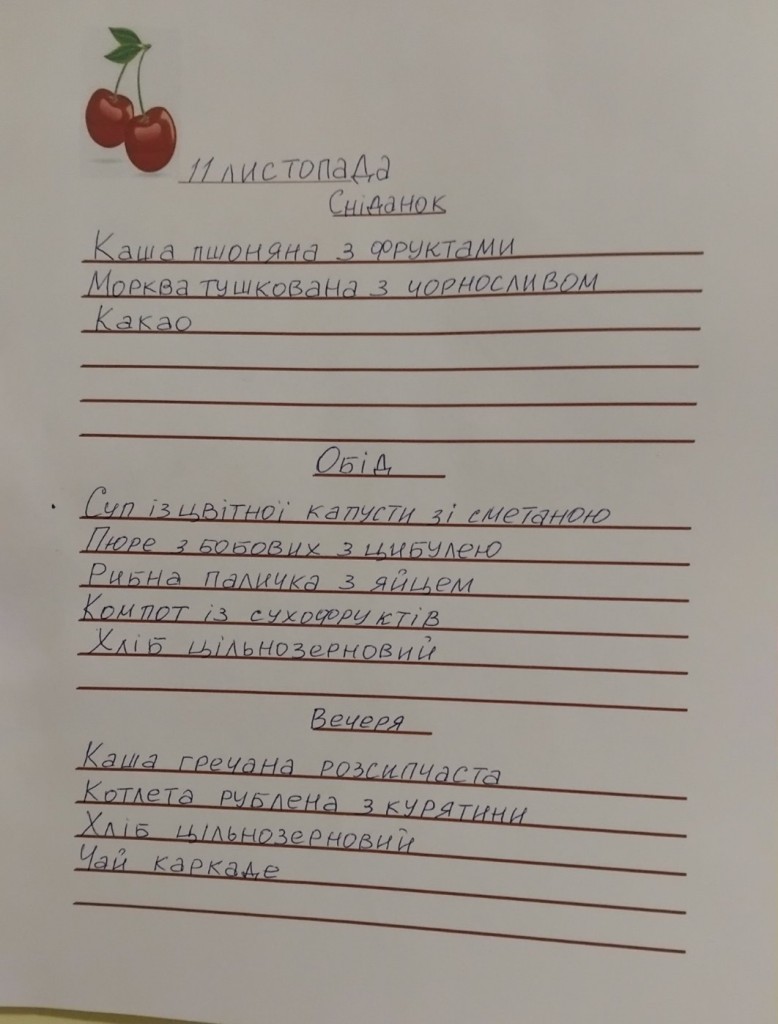 11 листопада
Сніданок
Каша пшоняна з фруктами
Морква тушкована з чорносливом
Какао
Обід
Суп із цвітної капусти зі сметаною
Пюре з бобових з цибулею
Рибна паличка з яйцем
Компот із сухофруктів
Хліб цільнозерновий
Вечеря
Каша гречана розсипчаста
Котлета рублена з курятини
Хліб цільнозерновий
Чай каркаде